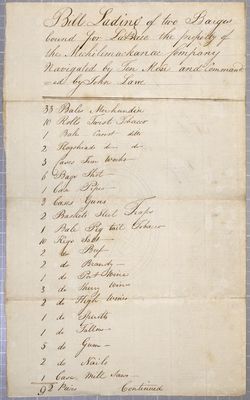 Bill Lading of two Barges
bound for LaBaie the property of
the Michilimackanac Company
Navigated by Ten Men and Command
ed by John Law
33 Bales Merchandise
10 Rolls Twist Tobacco
1 Bale Carrot ditto
2 Hogshead do do
3 Cases Iron Works
6 Bags Shot
1 Case Pipes
3 Cases Guns
2 Baskets Steel Traps
1 Bale Pig tail Tobacco
10 Kegs Salt
2 do Beef
2 do Brandy
1 do Port Wine
3 do Sherry Wine
2 do High Wines
1 do Spirits
1 do Tallow
5 do Gum
2 do Nails
1 Case Mill Saws
92 Pieces Continued